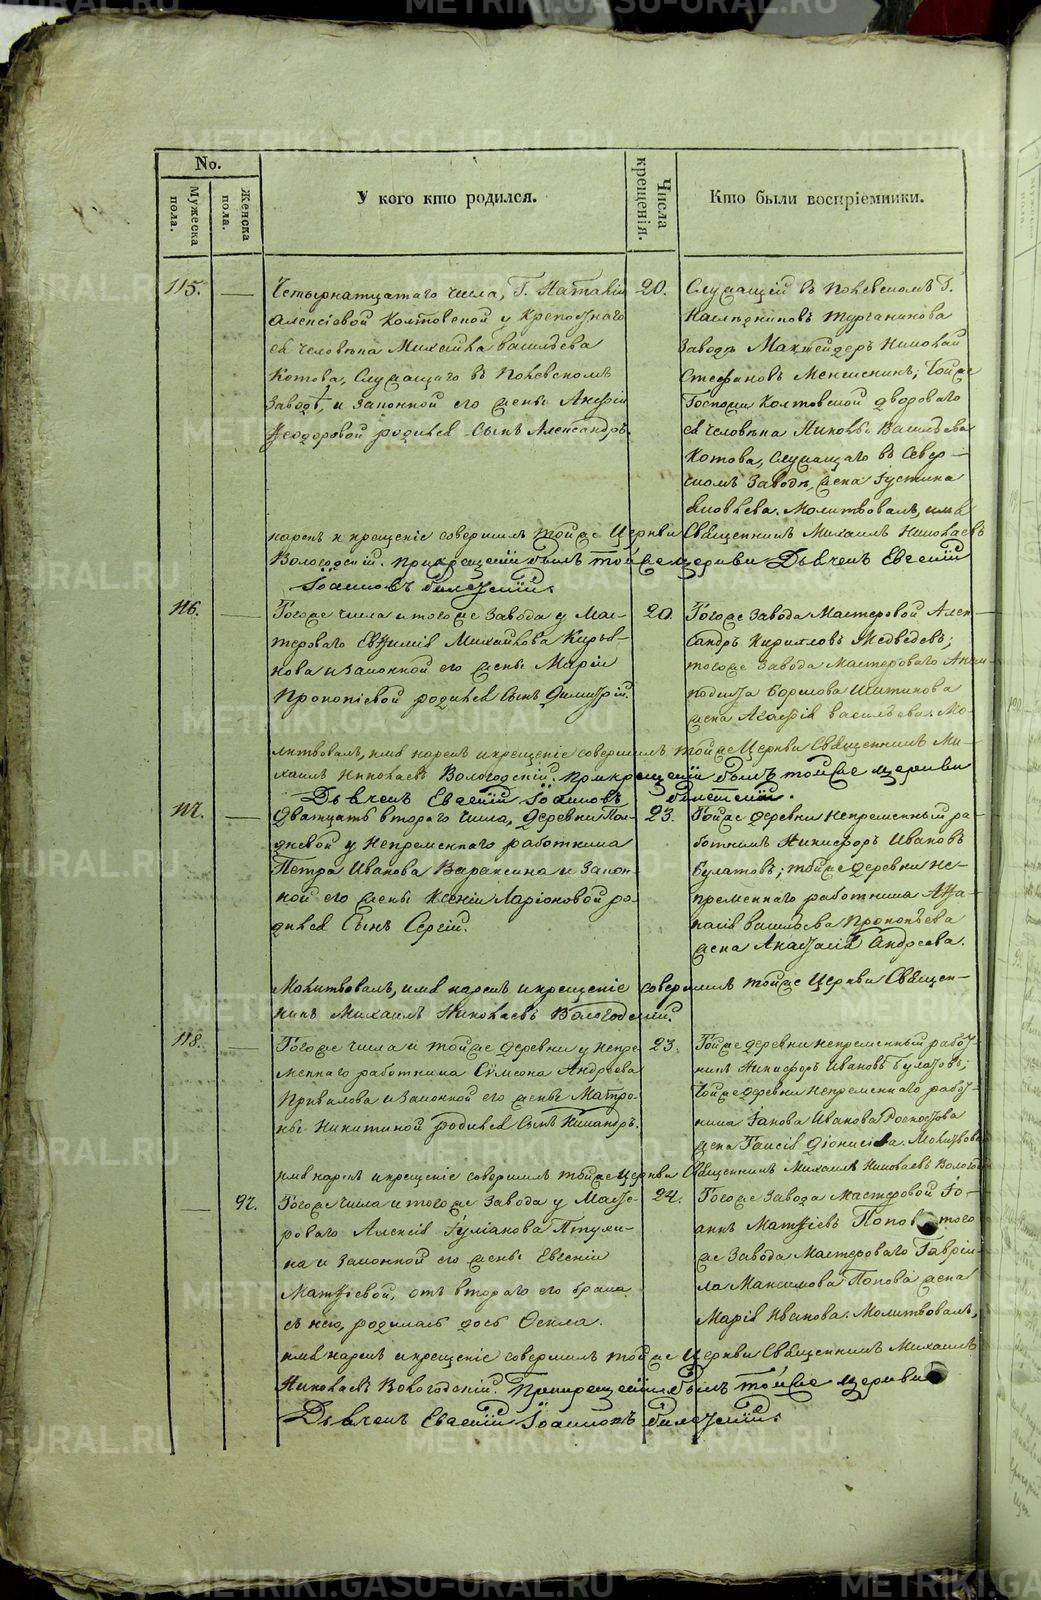 No.
Мужеска пола.
Женска пола.
У кого кто родился.
Числа крещенія.
Кто были воспріемники.
115. — Четырнатцатаго числа, Г. Наталіи 20.
Алексіевой Колтовской у крепостнаго
ея человѣка Михаила Васильева
Котова, служащаго в
Заводѣ, и законной его жены
Феодоровой родился Сынъ Александръ.
Служащій въ Г.
Наслѣдниковъ Турчанинова
Заводѣ Николай
Стефановъ; тойже
Госпожи Колтовской двороваго
ея человѣка Васильева
Котова, служащаго в Север-
скомъ Заводѣ, жена Іустина
Яковлева. Молитвовалъ, имя
нарекъ и крещеніе совершилъ тойже Церкви Священникъ Михаилъ Николаевъ
Вологодскій. При крещеніи былъ тойже церкви Дьячекъ Евгеній
Іоанновъ
116. — Тогоже числа и тогоже Завода у Мас- 20.
тероваго Евѳимія Михайлова
и законной его жены Маріи
Прокопіевой родился Сынъ Димитрій.
Тогоже Завода Мастеровой Алек-
сандръ Кирилловъ Медведевъ;
тогоже Завода Мастероваго
Борисова
жена Агафія Васильева. Мо-
литвовалъ, имя нарекъ и крещеніе совершилъ тойже Церкви Священникъ Ми-
хаилъ Николаевъ Вологодскій. При крещеніи былъ тойже церкви
Дьячекъ Евгеній Іоанновъ
117. — Дватцать втораго числа, деревни Пол- 23.
дневой у Непременнаго работника
Петра Иванова Вараксина и закон-
ной его жены Ксеніи Ларіоновой ро-
дился Сынъ Сергій.
Тойже деревни непременный ра-
ботникъ Никифоръ Ивановъ
Булатовъ; тойже деревни не-
пременнаго работника Афа-
насія Васильева Прокопьева
жена Анастасія Андреева.
Молитвовалъ, имя нарекъ и крещеніе совершилъ тойже Церкви Священ-
никъ Михаилъ Николаевъ Вологодскій.
118. — Тогоже числа и тойже деревни у Непре- 23.
меннаго работника Сѵмеона Андреева
Привалова и законной его жены Матро-
ны Никитиной родился Сынъ Никандръ.
Тойже деревни непременный работ-
никъ Никифоръ Ивановъ Булатовъ;
тойже деревни непременнаго работ-
ника Іакова Иванова
жена Таисія Діонисіева. Молитвовал
имя нарекъ и крещеніе совершилъ тойже Церкви Священникъ Михаилъ Николаевъ Вологод
— 97. Тогоже числа и тогоже Завода у Масте- 24.
роваго Алексія
и законной его жены Евгеніи
Матѳіевой, отъ втораго его брака
съ нею, родилась дочь Ѳекла.
Тогоже Завода Мастеровой Іо-
аннъ Матѳіевъ Поповъ, того
же Завода Мастероваго Гаврі-
ла Максимова Попова жена
Марія Иванова. Молитвовалъ,
имя нарекъ и крещеніе совершилъ тойже Церкви Священникъ Михаилъ
Николаевъ Вологодскій. При крещеніи былъ тойже церкви
Дьячекъ Евгеній Іоанновъ
METRIKI.GASO-URAL.RU